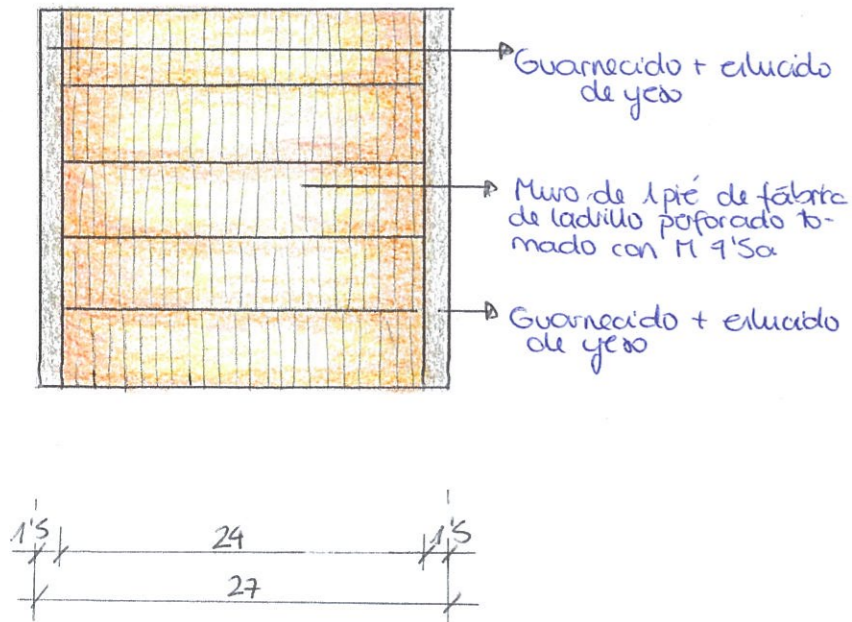 Guarnecido + enlucido
de yeso
Muro de 1 pié de fábrica
de ladrillo perforado to-
mado con M
Guarnecido + enlucido
de yeso
1'5
24
1'5
27